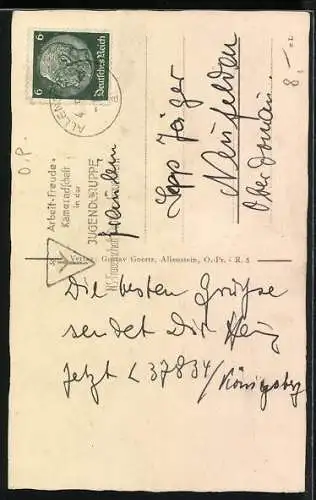 6
Deutsches Reich
6
ALLENS
O.P.
8,-
Arbeit-Freude-
Kameradschaft
in der
JUGENDGRUPPE
NS.-Frauenschaft
Sepp Jäger
Neufelden
Oberdonau
Verlag Gustav Goertz, Allenstein, O.-Pr. - R. 8
Die besten Grüße
sendet Dir
jetzt L 37834/Königsberg